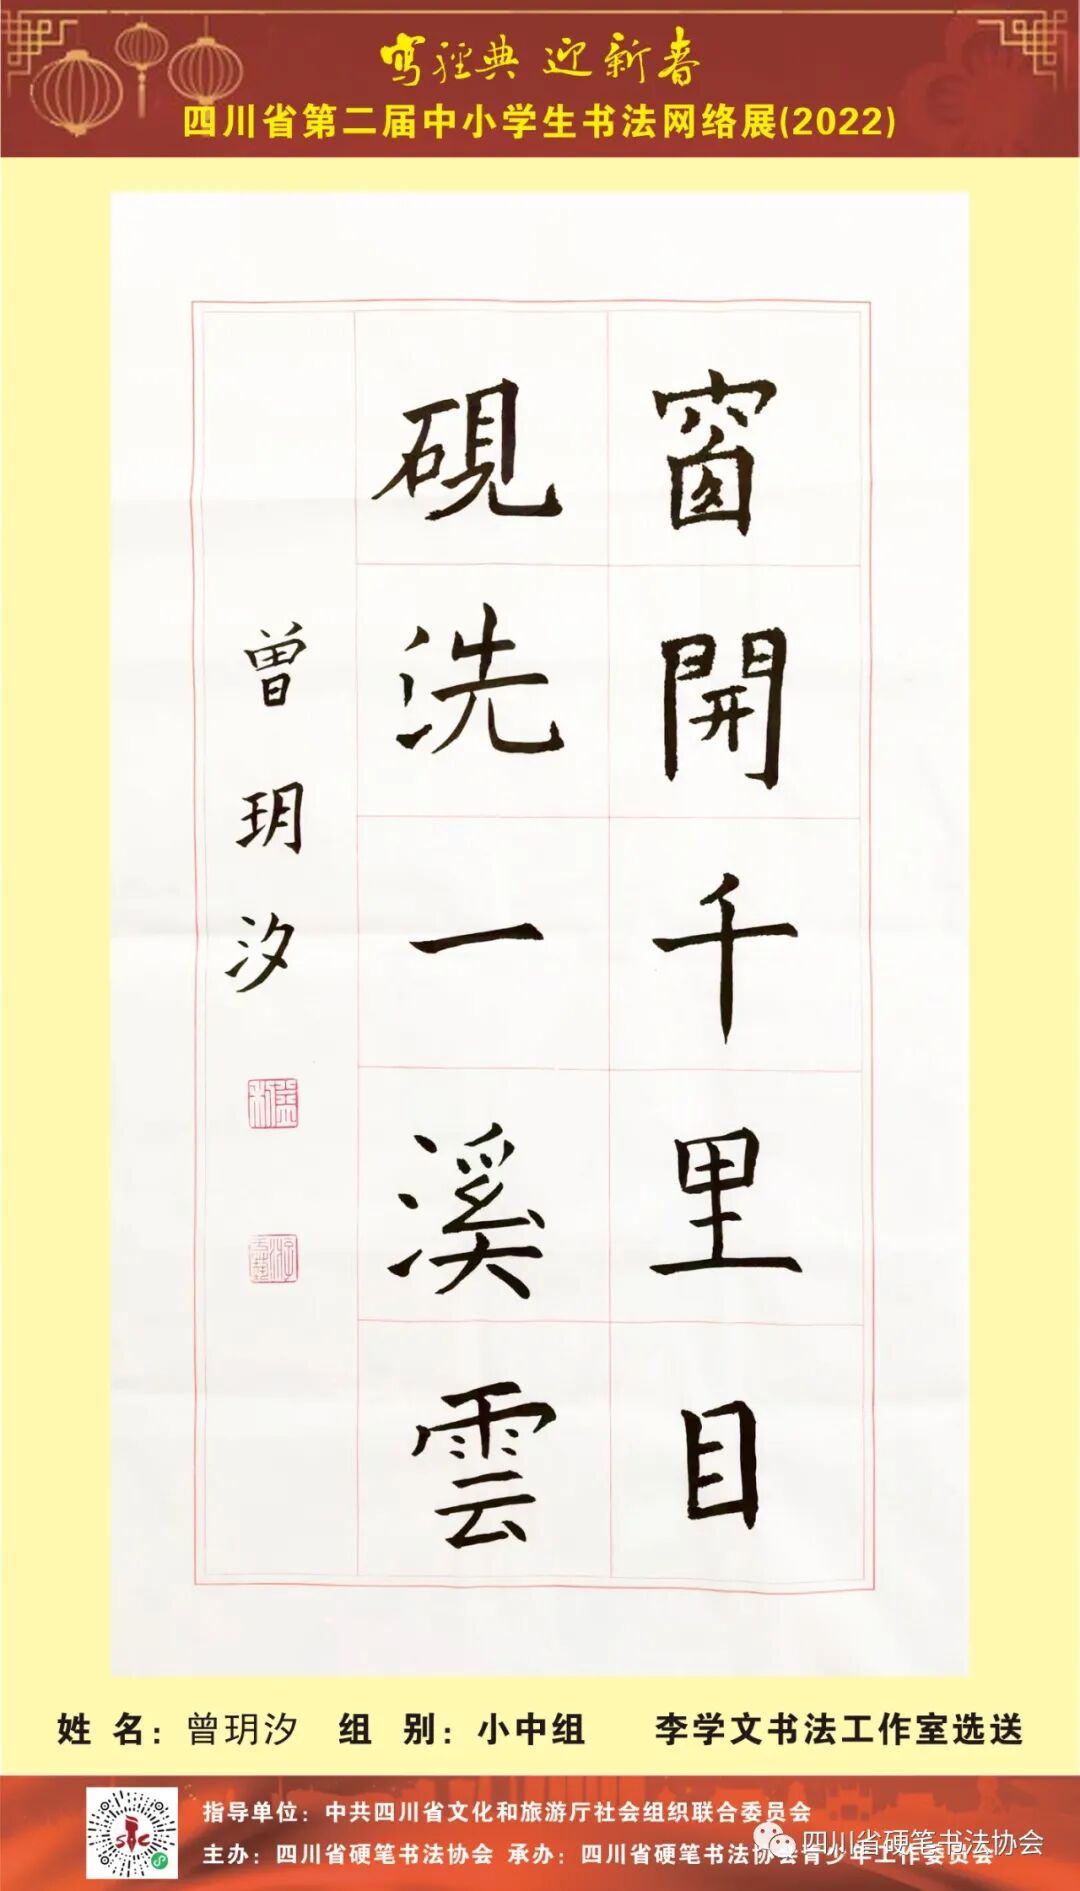 写經典 迎新春
四川省第二届中小学生书法网络展(2022)
窗開千里目
硯洗一溪雲
曾玥汐
姓 名：曾玥汐 组 别：小中组 李学文书法工作室选送
指导单位：中共四川省文化和旅游厅社会组织联合委员会
主办：四川省硬笔书法协会 承办：四川省硬笔书法协会青少年工作委员会
四川省硬笔书法协会